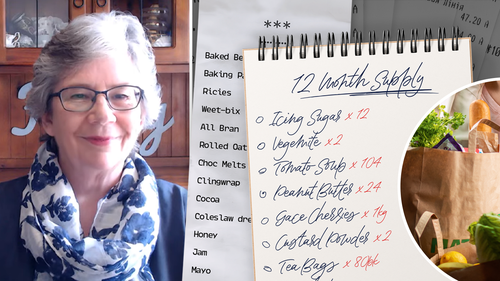 ***
Baked Be
Baking Pa
Ricies
Weet-bix
All Bran
Rolled Oat
Choc Melts
Clingwrap
Cocoa
Coleslaw dre
Honey
Jam
Mayo
12 Month Supply
Icing Sugar x 12
Vegemite x 2
Tomato Soup x 104
Peanut Butter x 24
Gace Cherries x 1kg
Custard Powder x 2
Tea Bags x 80pk
47.20